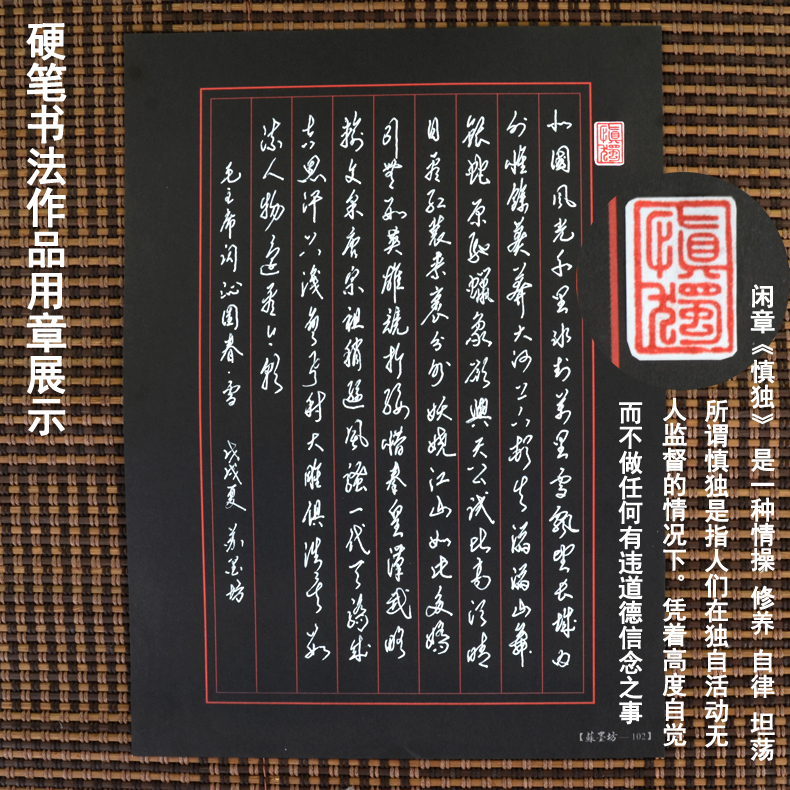 硬笔书法作品用章展示
北國風光千里冰封萬里雪飄望長城内
外惟餘莽莽大河上下頓失滔滔山舞
銀蛇原馳蠟象欲與天公試比高须晴
日看红裝素裹分外妖嬈江山如此多嬌
引無數英雄競折腰惜秦皇漢武略
输文采唐宋祖稍遜風騷一代天驕成
吉思汗只識弯弓射大雕俱往矣數
流人物還看今朝
毛主席词沁园春·雪 戊戌夏 苏墨坊
慎獨
慎獨
闲章《慎独》是一种情操 修养 自律 坦荡
所谓慎独是指人们在独自活动无
人监督的情况下。凭着高度自觉
而不做任何有违道德信念之事
【蘇墨坊—102】